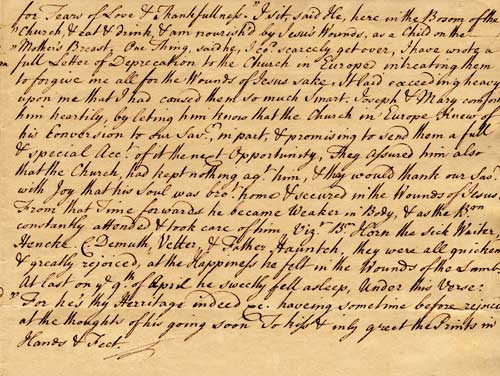 for Tears of Love & Thankfullness. "I sit, said He, here in the Bosom of the
"Church, & eat & drink, & am nourish'd by Jesus's Wounds, as a Child on the
"Mother's Breast. One Thing, said he, I co'd scarcely get over, I have wrote a
full Letter of Deprecation to the Church in Europe intreating them
to forgive me all for the Wounds of Jesus sake, It laid exceeding heavy
upon me that I had caused them so much Smart. Joseph & Mary comfor
him heartily, by leting him know that the Church in Europe Knew of
his Conversion to our Savr. in part, & promising to send them a full
& special Acct. of it the next Opportunity, They assured him also
that the Church, had kept nothing agt. him, & they would thank our Savr.
with Joy that his Soul was brot. home & secured in the Wounds of Jesus.
From that Time forwards he became Weaker in Body, & as the Brn
constantly attended & took care of him, Vizt. Br. Horn the Sick Waiter,
Hencke, C. Demuth, Vetter, & Father Hauntch, they were all quicken
& greatly rejoiced, at the Happiness he felt in the Wounds of the Lamb
At last on ye 9th. of April he sweetly fell asleep, Under this Verse:
"For he's thy Herritage indeed &c: haveing sometime before rejoice
at the thoughts of his going soon To kiss & inly greet the Prints in
Hands & Feet.